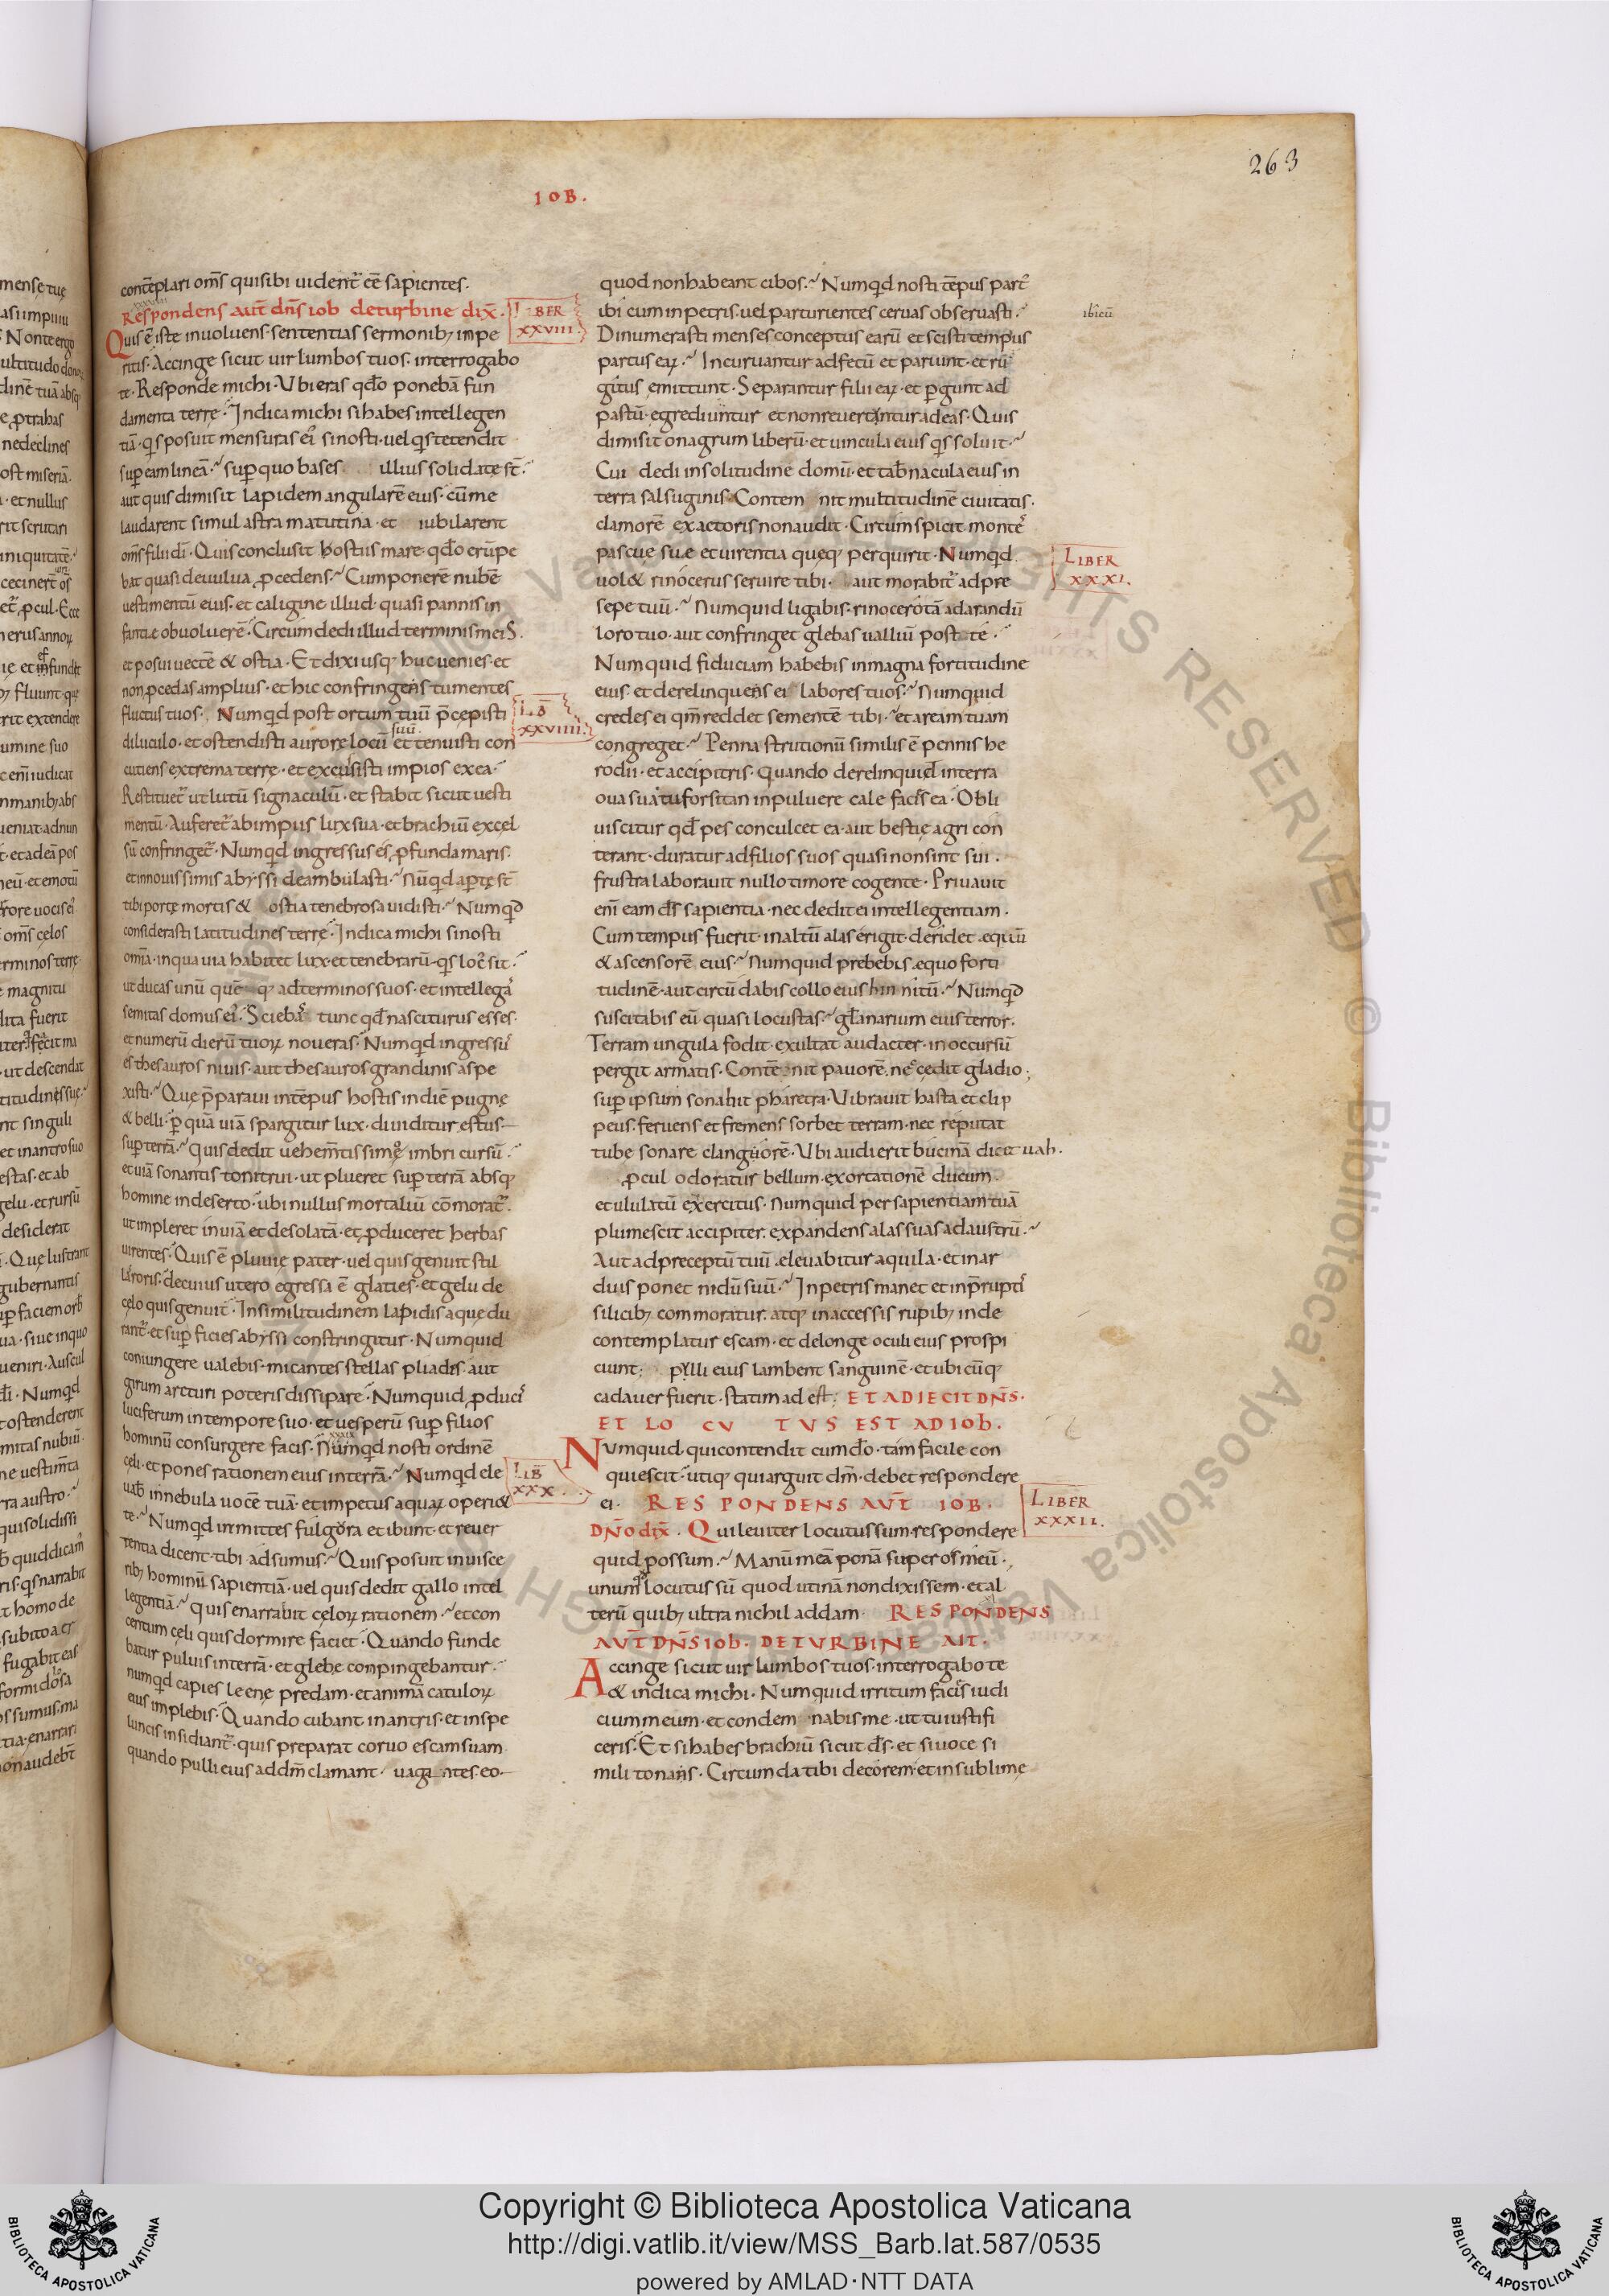 263
IOB.
contẽplari om̃s quisibi uident᷑ eẽ sapientes.
Respondens aut̃ dñs iob deturbine dix̃.
LIBER
XXVIII.
Quis ẽ iste inuoluens sententias sermonib; impe
ritis. Accinge sicut uir lumbos tuos. interrogabo
te. Responde michi. Vbi eras qđo ponebã fun
damenta terrę. Indica michi sihabes intellegen
tiã. qs posuit mensuras ei᾽ sinosti. uel qs tetendit
sup eam lineã. sup quo bases illius solidatę st̃.
aut quis dimisit lapidem angularẽ eius. cũ me
laudarent simul astra matutina. et iubilarent
om̃s filii dĩ. Quis conclusit hostiis mare. qđo erũpe
bat quasi deuulua ꝓcedens. Cum ponerẽ nubẽ
uestimentũ eius. et caligine illud quasi pannis in
fantię obuoluerẽ. Circũdedi illud terminis meis.
et posui uectẽ & ostia. Et dixi usq; huc uenies. et
non ꝓcedas amplius. et hic confringens tumentes
fluctus tuos. Numqd post ortum tuũ p̃cepisti
LIB̃
XXVIIII.
diluculo. et ostendisti aurorę locũ suũ. et tenuisti con
cutiens extrema terrę. et excusisti impios ex ea.
Restituet᷑ ut lutũ signaculũ. et stabit sicut uesti
mentũ. Auferet᷑ abimpiis lux sua. et brachiũ excel
sũ confringet᷑. Numqd ingressus es ꝓfunda maris.
et innouissimis abyssi deambulasti. Nũqd aptę st̃
tibi portę mortis & ostia tenebrosa uidisti. Numqd
considerasti latitudines terrę. Indica michi sinosti
om̃ia. inqua uia habitet lux. et tenebrarũ qs loc᾽ sit.
ut ducas unũ quẽ q; adterminos suos. et intellegas
semitas domus ei᾽. Sciebas tunc qđ nasciturus esses.
et numerũ dierũ tuoꝝ noueras. Numqd ingressus
es thesauros niuis. aut thesauros grandinis aspe
xisti. Quę p̃paraui intẽpus hostis indiẽ pugnę
& belli. p quã uiã spargitur lux. diuiditur estus
sup terrã. Quis dedit uehem̃tissimo imbri cursũ.
et uiã sonantis tonitrui. ut plueret sup terrã absq;
homine indeserto. ubi nullus mortaliũ cõmorat᷑.
ut impleret inuiã et desolatã. et ꝓduceret herbas
uirentes. Quis ẽ pluuię pater. uel quis genuit stil
las roris. decuius utero egressa ẽ glaties. et gelu de
cęlo quis genuit. Insimilitudinem lapidis aquę du
rant᷑. et sup ficies abyssi constringitur. Numquid
coniungere ualebis. micantes stellas pliadis. aut
girum arcturi poteris dissipare. Numquid ꝓducis
luciferum intempore suo. et uesperũ sup filios
hominũ consurgere facis. Numqd nosti ordinẽ
cęli. et pones rationem eius interrã. Numqd ele
LIB̃
XXX.
uab innebula uocẽ tuã. et impetus aquaꝝ operi&
te. Numqd inmittes fulgora et ibunt. et reuer
tentia dicent. tibi adsumus. Quis posuit inuisce
rib; hominũ sapientiã. uel quis dedit gallo intel
legentiã. quis enarrabit cęloꝝ rationem. et con
centum cęli quis dormire faciet. Quando funde
batur puluis interrã. et glebę conpingebantur.
numqd capies leenę predam. et animã catuloꝝ
eius implebis. Quando cubant inantris. et inspe
luncis insidiant᷑. quis preparat coruo escam suam
quando pulli eius addm̃ clamant. uagantes. eo
quod nonhabeant cibos. Numqd nosti tẽpus part᾽
ibi cum inpetris. uel parturientes ceruas obseruasti.
ibicũ
Dinumerasti menses conceptus earũ et scisti tempus
partus eaꝝ. Incuruantur adfetũ et pariunt. et ru
gitus emittunt. Separantur filii eaꝝ. et pgunt ad
pastũ. egrediuntur et nonreuertuntur adeas. Quis
dimisit onagrum liberũ. et uincula eius qs soluit.
Cui dedi insolitudine domũ. et tab̃nacula eius in
terra salsuginis. Contem nit multitudinẽ ciuitatis.
clamorẽ exactoris nonaudit. Circum spicit montes
pascuę suę et uirentia quęq; perquirit. Numqd
LIBER
XXXI.
uol& rinocerus seruire tibi. aut morabit᷑ adpre
sepe tuũ. Numquid ligabis. rinocerota adarandũ
loro tuo. aut confringet glebas ualliũ post te.
Numquid fiduciam habebis inmagna fortitudine
eius. et derelinquens ei labores tuos. Numquid
credes ei qm̃ reddet sementẽ tibi. et aream tuam
congreget. Penna strutionũ similis ẽ pennis he
rodii. et accipitris. Quando derelinquid interra
oua sua tu forsitan inpuluere cale facis ea. Obli
uiscitur qđ pes conculcet ea. aut bestię agri con
terant. duratur adfilios suos quasi nonsint sui.
frustra laborauit nullo timore cogente. Priuauit
enĩ eam ds̃ sapientia. nec dedit ei intellegentiam.
Cum tempus fuerit. inaltũ alas erigit. deridet equũ
& ascensorẽ eius. Numquid prebebis. equo forti
tudinẽ. aut circũ dabis collo eius hin nitũ. Numqd
suscitabis eũ quasi locustas. gła narium eius terror.
Terram ungula fodit. exultat audacter. inoccursũ
pergit armatis. Contẽ nit pauorẽ. nec cedit gladio;
sup ipsum sonabit pharetra. Vibrauit hasta et cli p
peus. feruens et fremens sorbet terram. nec reputat
tubę sonare clangorẽ. Vbi audierit bucinã dicit uah.
ꝓcul odoratur bellum. exortationẽ ducum.
et ululatũ exercitus. Numquid per sapientiam tuã
plumescit accipiter. expandens alas suas adaustrũ.
Aut adpreceptũ tuũ. eleuabitur aquila. et inar
duis ponet nidũ suũ. Inpetris manet et inp̃ruptis
silicib; commoratur. atq; inaccessis rupib; inde
contemplatur escam. et delonge oculi eius prospi
ciunt; pylli eius lambent sanguinẽ. et ubi cũq;
cadauer fuerit. statim ad est; ET ADIECIT DÑS.
ET LO CV TVS EST AD IOb.
Numquid. qui contendit cum dõ. tam facile con
quiescit. utiq; qui arguit dm̃. debet respondere
ei. RES PONDENS AVT̃ IOB.
LIBER
XXXII.
DÑO dix̃. Qui leuiter locutus sum. respondere
quid possum. Manũ meã ponã super os meũ.
unum locutus sũ quod utinã non dixissem. et al
terũ quib; ultra nichil addam RESPONDENS
AVT̃ DÑS IOb. DETVRBINE AIT.
Accinge sicut uir lumbos tuos. interrogabo te
& indica michi. Numquid irritum facis iudi
cium meum. et condem nabis me. ut tu iustifi
ceris. Et sihabes brachiũ sicut ds̃. et siuoce si
mili tonans. Circumda tibi decorem. et insublime
Copyright © Biblioteca Apostolica Vaticana
http://digi.vatlib.it/view/MSS_Barb.lat.587/0535
powered by AMLAD·NTT DATA
BIBLIOTECA APOSTOLICA VATICANA
BIBLIOTECA APOSTOLICA VATICANA